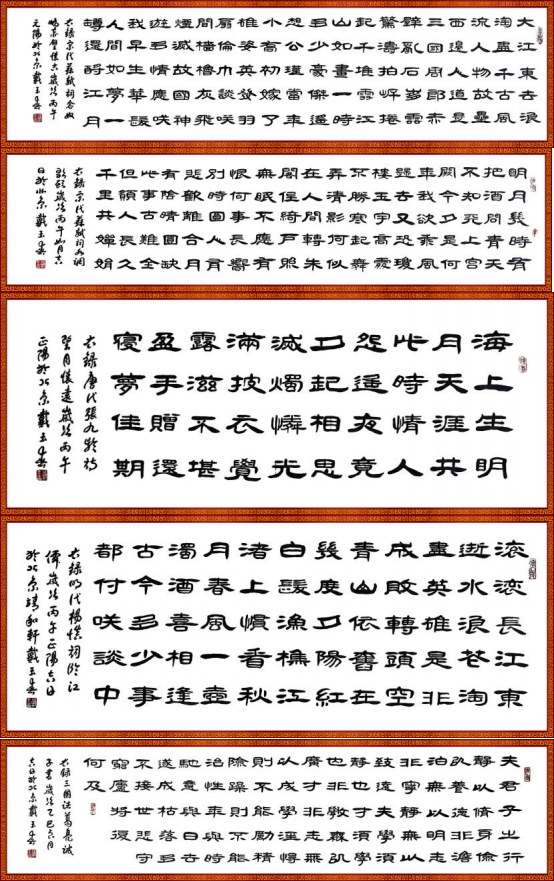 大江東去浪
淘盡千古風
流人物故壘
西邊人道是
三國周郎赤
壁亂石崩雲
驚濤拍岸捲
起千堆雪江
山如畫一時
多少豪傑遙
想公瑾當年
小喬初嫁了
雄姿英發羽
扇綸巾談咲
間檣櫓灰飛
煙滅故國神
遊多情應咲
我早生華髮
人間如夢一
樽還酹江月
右錄宋代蘇軾詞念奴
嬌赤壁懷古歲次丙午
正陽於北京戴玉春
明月幾時有
把酒問青天
不知天上宮
闕今夕是何
年我欲乘風
歸去又恐瓊
樓玉宇高處
不勝寒起舞
弄清影何似
在人間轉朱
閣低綺戶照
無眠不應有
恨何事長嚮
別時圓人有
悲歡離合月
有陰晴圓缺
此事古難全
但願人長久
千里共嬋娟
右錄宋代蘇軾詞水調
歌頭歲次丙午如月六
日於北京戴玉春
海上生明
月天涯共
此時情人
怨遙夜竟
夕起相思
滅燭憐光
滿披衣覺
露滋不堪
盈手贈還
寢夢佳期
右錄唐代張九齡詩
望月懷遠歲次丙午
正陽於北京戴玉春
滾滾長江東
逝水浪花淘
盡英雄是非
成敗轉頭空
青山依舊在
幾度夕陽紅
白髮漁樵江
渚上慣看秋
月春風一壺
濁酒喜相逢
古今多少事
都付咲談中
右錄明代楊慎詞臨江
僊歲次丙午正陽六日
於北京靖和軒戴玉春
夫君子之行
靜以修身儉
以養德非澹
泊無以明志
非寧靜無以
致遠夫學須
靜也才須學
也非學無以
廣才非志無
以成學淫慢
則不能勵精
險躁則不能
冶性年與時
馳意與日去
遂成枯落多
不接世悲守
窮廬將復
何及
右錄三國諸葛亮誡
子書歲次乙巳六月
六日於北京戴玉春